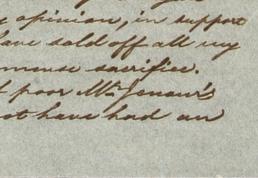 opinion, in support
have sold off all my
mense sacrifice.
poor Mr
ot have had an